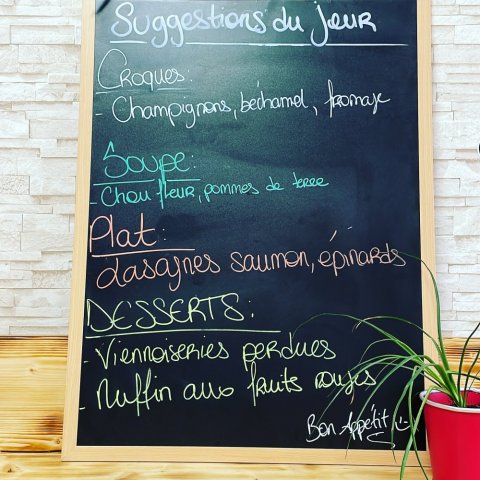 Suggestions du jour
Croques:
- Champignons, béchamel, fromage
Soupe:
- Chou fleur, pommes de terre
Plat:
Lasagnes saumon, épinards
DESSERTS:
- Viennoiseries perdues
- Muffin aux fruits rouges
Bon Appétit :-